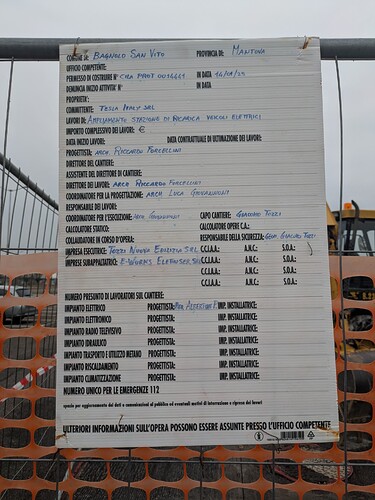 COMUNE DI: BAGNOLO SAN VITO PROVINCIA DI: MANTOVA
UFFICIO COMPETENTE:
PERMESSO DI COSTRUIRE N° PROT 0014441 IN DATA
DENUNCIA INIZIO ATTIVITA' N° IN DATA
PROPRIETA':
COMMITTENTE: TESLA ITALY SRL
LAVORI DI: AMPLIAMENTO STAZIONE DI RICARICA VEICOLI ELETTRICI
IMPORTO COMPLESSIVO DEI LAVORI: €
DATA INIZIO LAVORI: DATA CONTRATTUALE DI ULTIMAZIONE DEI LAVORI:
PROGETTISTA: ARCH. RICCARDO FORCELLINI
DIRETTORE DEL CANTIERE:
ASSISTENTE DEL DIRETTORE DI CANTIERE:
DIRETTORE DEI LAVORI: ARCH RICCARDO FORCELLINI
COORDINATORE PER LA PROGETTAZIONE: ARCH LUCA GIOVANNONI
RESPONSABILE DEI LAVORI:
COORDINATORE PER L'ESECUZIONE: ARCH GIOVANNONI CAPO CANTIERE: GIACOMO TOZZI
CALCOLATORE STATICO: CALCOLATORE OPERE C.A.:
COLLAUDATORE IN CORSO D'OPERA: RESPONSABILE DELLA SICUREZZA: GEOM. GIACOMO TOZZI
IMPRESA ESECUTRICE: TOZZI NUOVA EDILIZIA SRL C.C.I.A.A.: A.N.C.: S.O.A.:
IMPRESE SUBAPPALTATRICI: E-WORKS SRL C.C.I.A.A.: A.N.C.: S.O.A.:
C.C.I.A.A.: A.N.C.: S.O.A.:
C.C.I.A.A.: A.N.C.: S.O.A.:
C.C.I.A.A.: A.N.C.: S.O.A.:
NUMERO PRESUNTO DI LAVORATORI SUL CANTIERE:
IMPIANTO ELETTRICO PROGETTISTA: IMP. INSTALLATRICE:
IMPIANTO ELETTRONICO PROGETTISTA: IMP. INSTALLATRICE:
IMPIANTO RADIO TELEVISIVO PROGETTISTA: IMP. INSTALLATRICE:
IMPIANTO IDRAULICO PROGETTISTA: IMP. INSTALLATRICE:
IMPIANTO TRASPORTO E UTILIZZO METANO PROGETTISTA: IMP. INSTALLATRICE:
IMPIANTO RISCALDAMENTO PROGETTISTA: IMP. INSTALLATRICE:
IMPIANTO CLIMATIZZAZIONE PROGETTISTA: IMP. INSTALLATRICE:
NUMERO UNICO PER LE EMERGENZE 112
spazio per aggiornamento dei dati o comunicazioni al pubblico ed eventuali motivi di interruzione o ripresa dei lavori
ULTERIORI INFORMAZIONI SULL'OPERA POSSONO ESSERE ASSUNTE PRESSO L'UFFICIO COMPETENTE